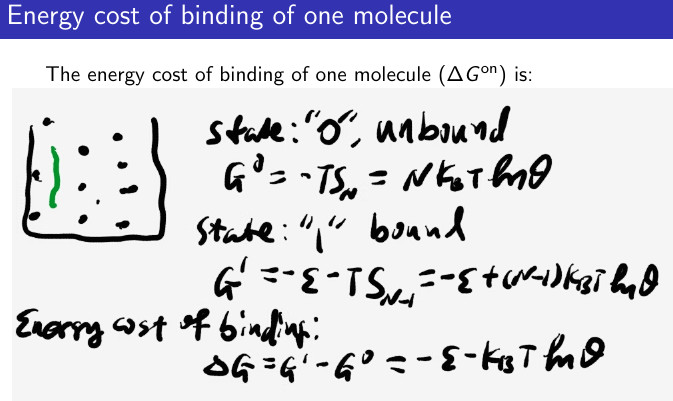 Energy cost of binding of one molecule
The energy cost of binding of one molecule (ΔG^on) is:
state: "0", unbound
G^0 = -TS_N = N k_B T ln θ
state: "1" bound
G^1 = -ε - TS_{N-1} = -ε + (N-1) k_B T ln θ
Energy cost of binding:
ΔG = G^1 - G^0 = -ε - k_B T ln θ